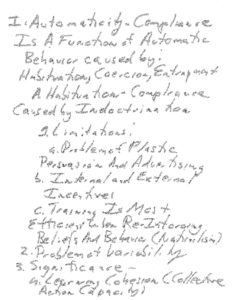 I: Automaticity - Compliance
Is A Function of Automatic
Behavior caused by:
Habituation, Coercion, Entrapment
A Habituation - Compliance
Caused by Indoctrination
2. Limitations:
a. Problem of Plastic
Persuasion And Advertising
b. Internal and External
Incentives
c. Training Is Most
Efficient When Re-Interging
Beliefs And Behavior (Naturilism)
2. Problem of Variability
3. Significance -
a. Learning Cohesion (Collective
Action Capacity)